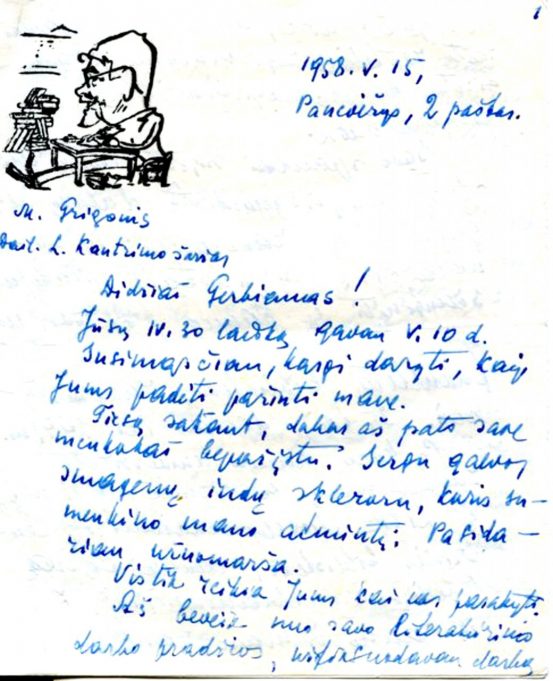 1
1958. V. 15,
Panevėžys, 2 paštas.
M. Grigonis
Dail. L. Kantrimo šaržas
Didžiai Gerbiamas!
Jūsų IV. 30 laišką gavau V. 10 d.
Susimąsčiau, kaipgi daryti, kaip
Jums padėti pažinti mane.
Tiesą sakant, dabar aš pats save
menkokai bepažįstu. Sergu galvos
smagenų indų sklerozu, kuris su-
menkino mano atmintį: Pasida-
riau užuomarša.
Vis tik reikia Jums kai kas pasakyti.
Aš beveik nuo savo literatūrinio
darbo pradžios, darbą